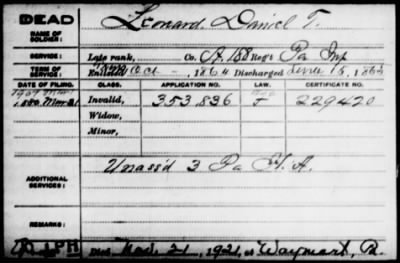 DEAD
NAME OF SOLDIER: Leonard, Daniel T.
SERVICE: Late rank, Co. A, 188 Reg't Pa Inf
TERM OF SERVICE: Enlisted Oct , 1864 Discharged June 15, 1865
DATE OF FILING. CLASS. APPLICATION NO. LAW. CERTIFICATE NO.
1880 Mar 31 Invalid, 353,836 229420
Widow,
Minor,
ADDITIONAL SERVICES: Unass'd 3 Pa H. A.
REMARKS:
Died Nov. 21, 1921, at Waymart, Pa.